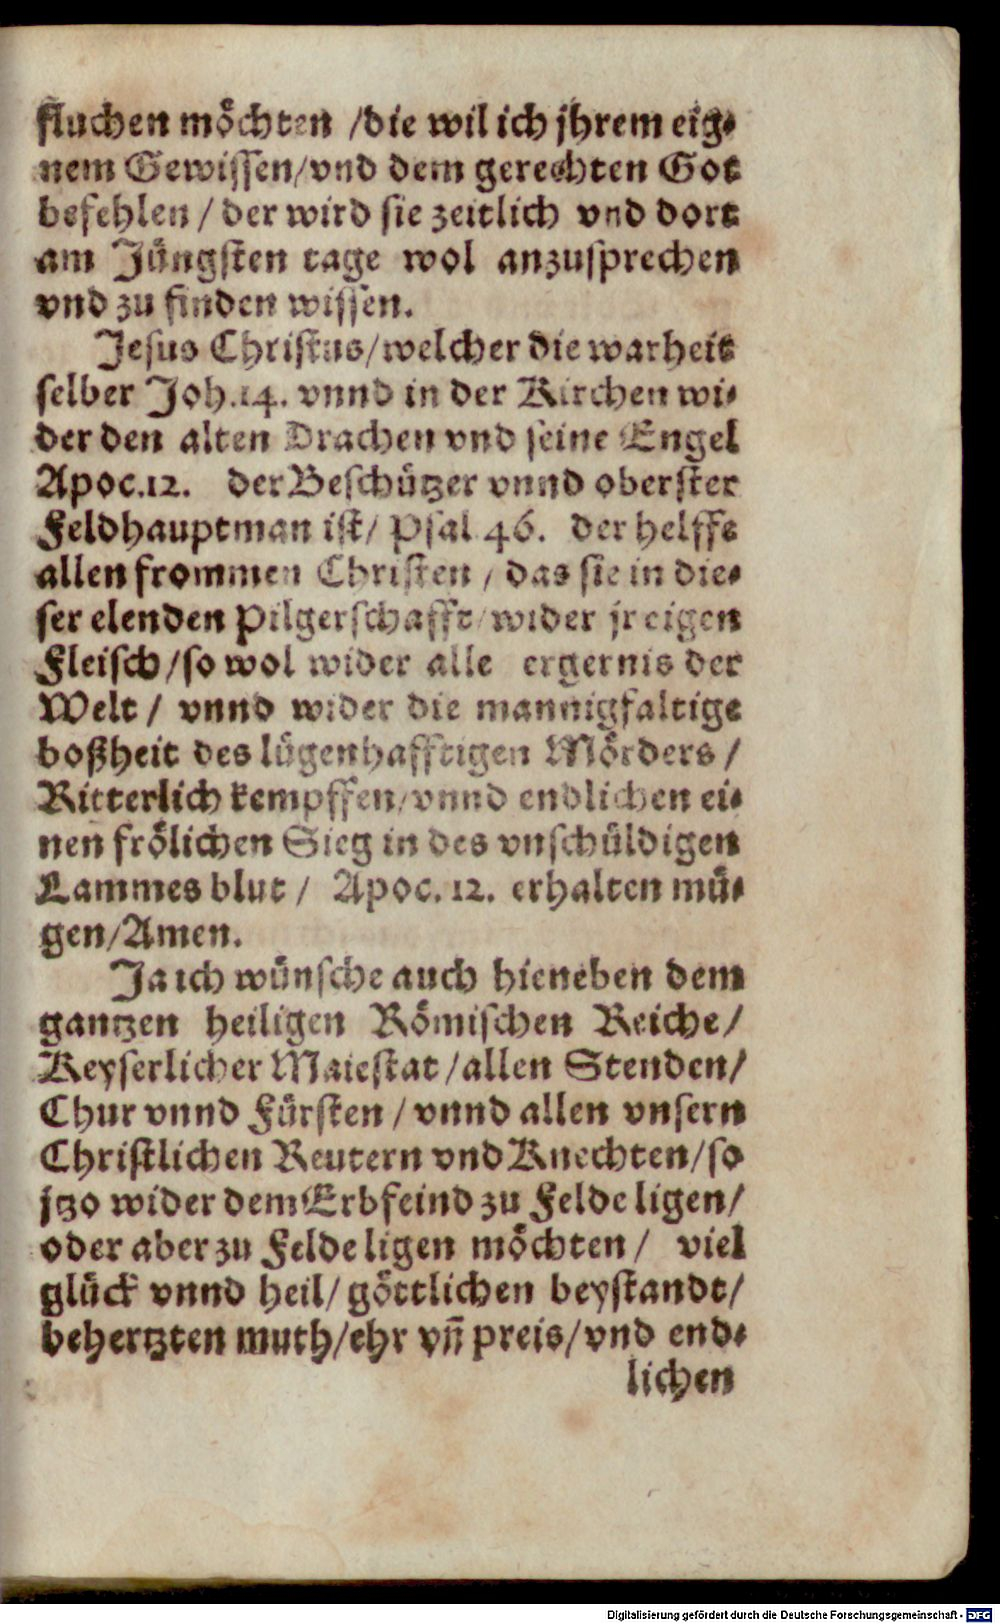 fluchen möchten /die wil ich jhrem eig⸗
nem Gewissen/vnd dem gerechten Got
befehlen / der wird sie zeitlich vnd dort
am Jüngsten tage wol anzusprechen
vnd zu finden wissen.
Jesus Christus/welcher die warheit
selber Joh.14. vnnd in der Kirchen wi⸗
der den alten Drachen vnd seine Engel
Apoc.12. der Beschützer vnnd oberster
Feldhauptman ist/ Psal 46. der helffe
allen frommen Christen / das sie in die⸗
ser elenden Pilgerschafft/wider jr eigen
Fleisch/so wol wider alle ergernis der
Welt / vnnd wider die mannigfaltige
boßheit des lügenhafftigen Mörders /
Ritterlich kempffen/vnnd endlichen ei⸗
nen frölichen Sieg in des vnschüldigen
Lammes blut / Apoc. 12. erhalten mü⸗
gen/Amen.
Ja ich wünsche auch hieneben dem
gantzen heiligen Römischen Reiche/
Keyserlicher Maiestat /allen Stenden/
Chur vnnd Fürsten / vnnd allen vnsern
Christlichen Reutern vnd Knechten/so
jtzo wider dem Erbfeind zu Felde ligen/
oder aber zu Felde ligen möchten / viel
glück vnnd heil/ göttlichen beystandt/
behertzten muth/ehr vñ preis/vnd end⸗
lichen
Digitalisierung gefördert durch die Deutsche Forschungsgemeinschaft - DFG